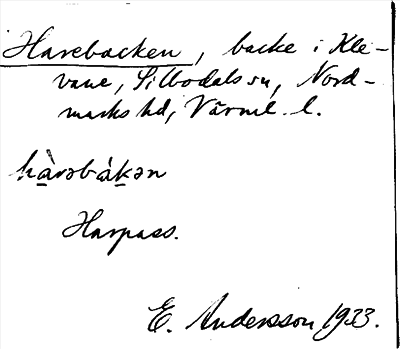 Harebacken, backe i Kle-
vane, Silbodals sn, Nord-
marks hd, Värml. l.
hàrəbàkən
Harpass.
E. Andersson 1933.